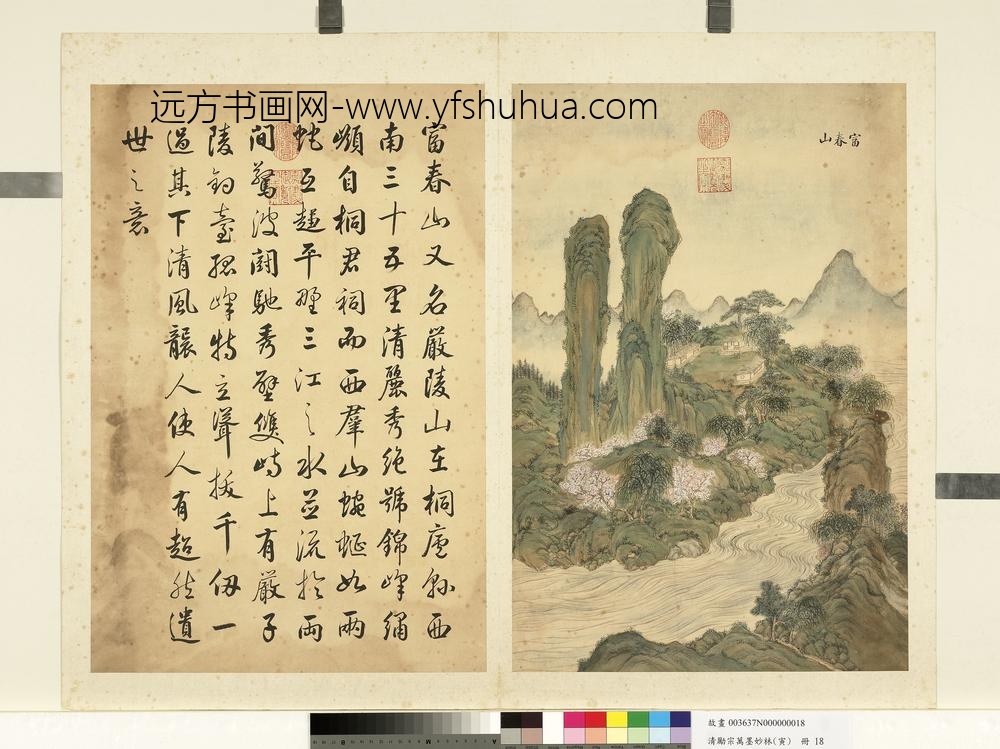 远方书画网-www.yfshuhua.com
富春山
富春山又名嚴陵山在桐廬縣西
南三十五里清麗秀絕號錦峰繡
嶺自桐君祠而西羣山蜿蜒如兩
蛇互趨平野三江之水並流於兩
間驚波鬪馳秀壁雙峙上有嚴子
陵釣臺孤峰特立聳拔千仞一
過其下清風襲人使人有超然遺
世之意
故畫 003637N000000018
清勵宗萬墨妙林(寅) 冊 18